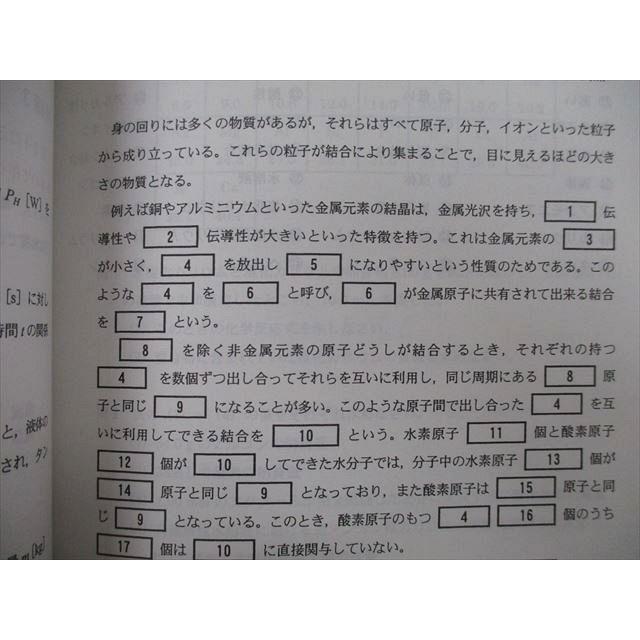 身の回りには多くの物質があるが，それらはすべて原子，分子，イオンといった粒子
から成り立っている。これらの粒子が結合により集まることで，目に見えるほどの大き
さの物質となる。
P_H [W] を
例えば銅やアルミニウムといった金属元素の結晶は，金属光沢を持ち， 1 伝
導性や 2 伝導性が大きいといった特徴を持つ。これは金属元素の 3
が小さく， 4 を放出し 5 になりやすいという性質のためである。この
[s] に対し
ような 4 を 6 と呼び， 6 が金属原子に共有されて出来る結合
時間 t の関係
を 7 という。
8 を除く非金属元素の原子どうしが結合するとき，それぞれの持つ
4 を数個ずつ出し合ってそれらを互いに利用し，同じ周期にある 8 原
子と同じ 9 になることが多い。このような原子間で出し合った 4 を互
と，液体の
いに利用してできる結合を 10 という。水素原子 11 個と酸素原子
され，タン
12 個が 10 してできた水分子では，分子中の水素原子 13 個が
14 原子と同じ 9 となっており，また酸素原子は 15 原子と同
じ 9 となっている。このとき，酸素原子のもつ 4 16 個のうち
17 個は 10 に直接関与していない。
[kg]